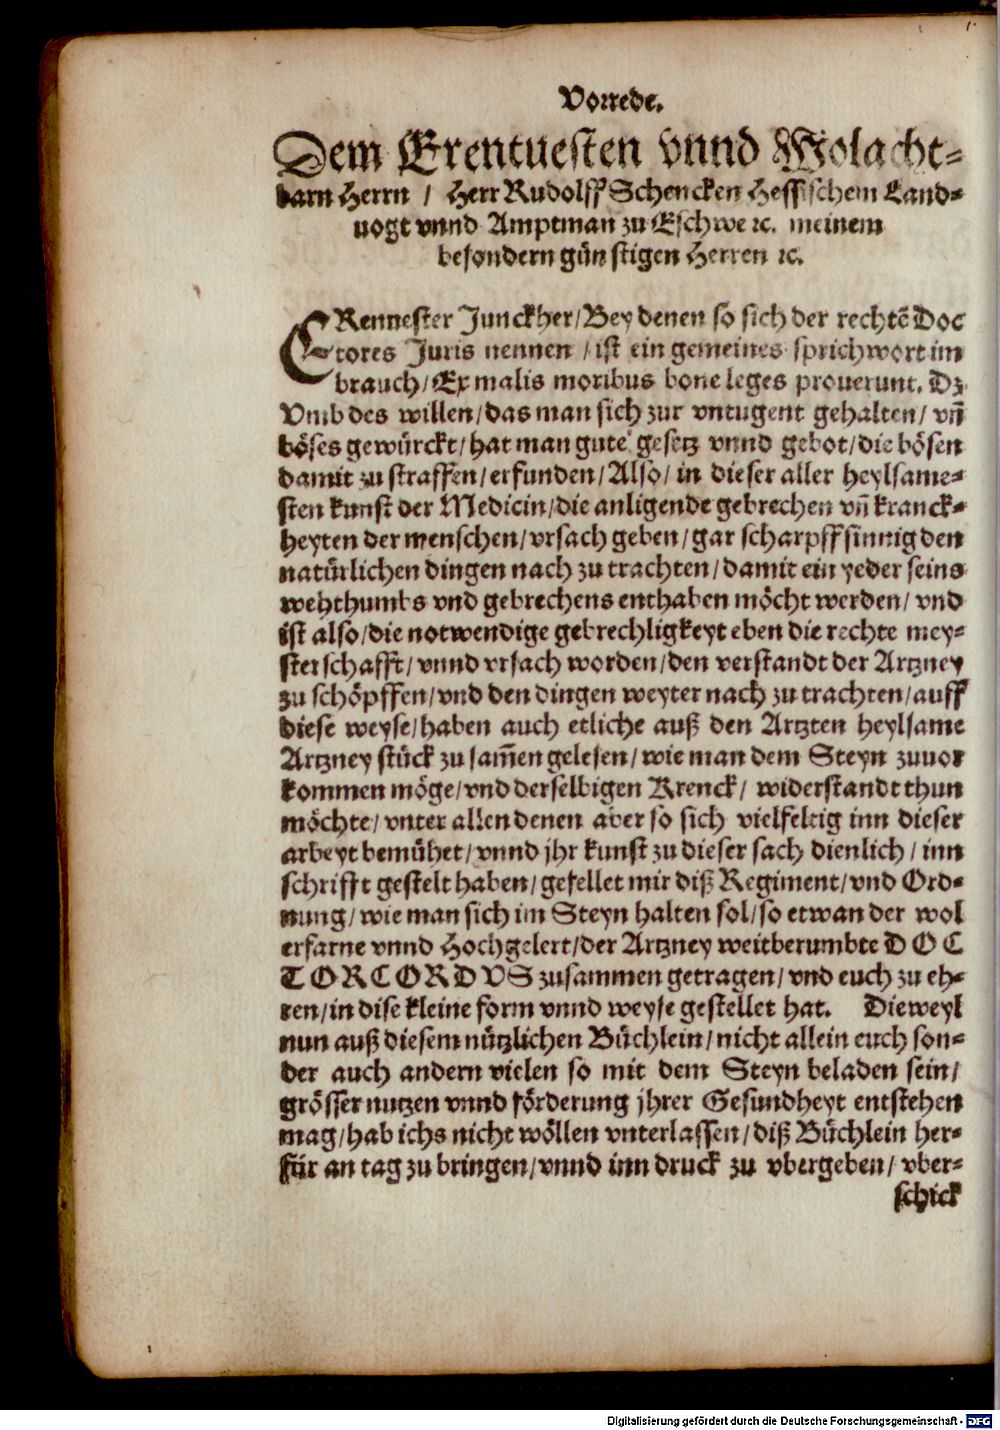 Vorrede.
Dem Erentuesten vnnd Wolacht-
barn Herrn / Herr Rudolff Schencken Hessischem Land-
uogt vnnd Amptman zu Eschwe ꝛc. meinem
besondern günstigen Herren ꝛc.
ERennester Junckher/Bey denen so sich der rechtē Doc
tores Juris nennen / ist ein gemeines sprichwort im
brauch/Ex malis moribus bone leges prouerunt. Dz
Vmb des willen/das man sich zur vntugent gehalten/vñ
böses gewürckt/hat man gute gesetz vnnd gebot/die bösen
damit zu straffen/erfunden/Also/in dieser aller heylsame-
sten kunst der Medicin/die anligende gebrechen vñ kranck-
heyten der menschen/vrsach geben/gar scharpffsinnig den
natürlichen dingen nach zu trachten/damit ein yeder seins
wehthumbs vnd gebrechens enthaben möcht werden/vnd
ist also/die notwendige gebrechligkeyt eben die rechte mey-
sterschafft/vnnd vrsach worden/den verstandt der Artzney
zu schöpffen/vnd den dingen weyter nach zu trachten/auff
diese weyse/haben auch etliche auß den Artzten heylsame
Artzney stück zu sam̄en gelesen/wie man dem Steyn zuuor
kommen möge/vnd derselbigen Krenck/ widerstandt thun
möchte/vnter allen denen aber so sich vielfeltig inn dieser
arbeyt bemühet/vnnd jhr kunst zu dieser sach dienlich/inn
schrifft gestelt haben/gefellet mir diß Regiment/vnd Ord-
nung/wie man sich im Steyn halten sol/so etwan der wol
erfarne vnnd Hochgelert/der Artzney weitberumbte D O C
T O R C O R D V S zusammen getragen/vnd euch zu eh-
ren/in dise kleine form vnnd weyse gestellet hat. Dieweyl
nun auß diesem nützlichen Büchlein/nicht allein euch son-
der auch andern vielen so mit dem Steyn beladen sein/
grösser nutzen vnnd förderung jhrer Gesundheyt entstehen
mag/hab ichs nicht wöllen vnterlassen/diß Büchlein her-
für an tag zu bringen/vnnd inn druck zu vbergeben/vber-
schick
Digitalisierung gefördert durch die Deutsche Forschungsgemeinschaft - DFG